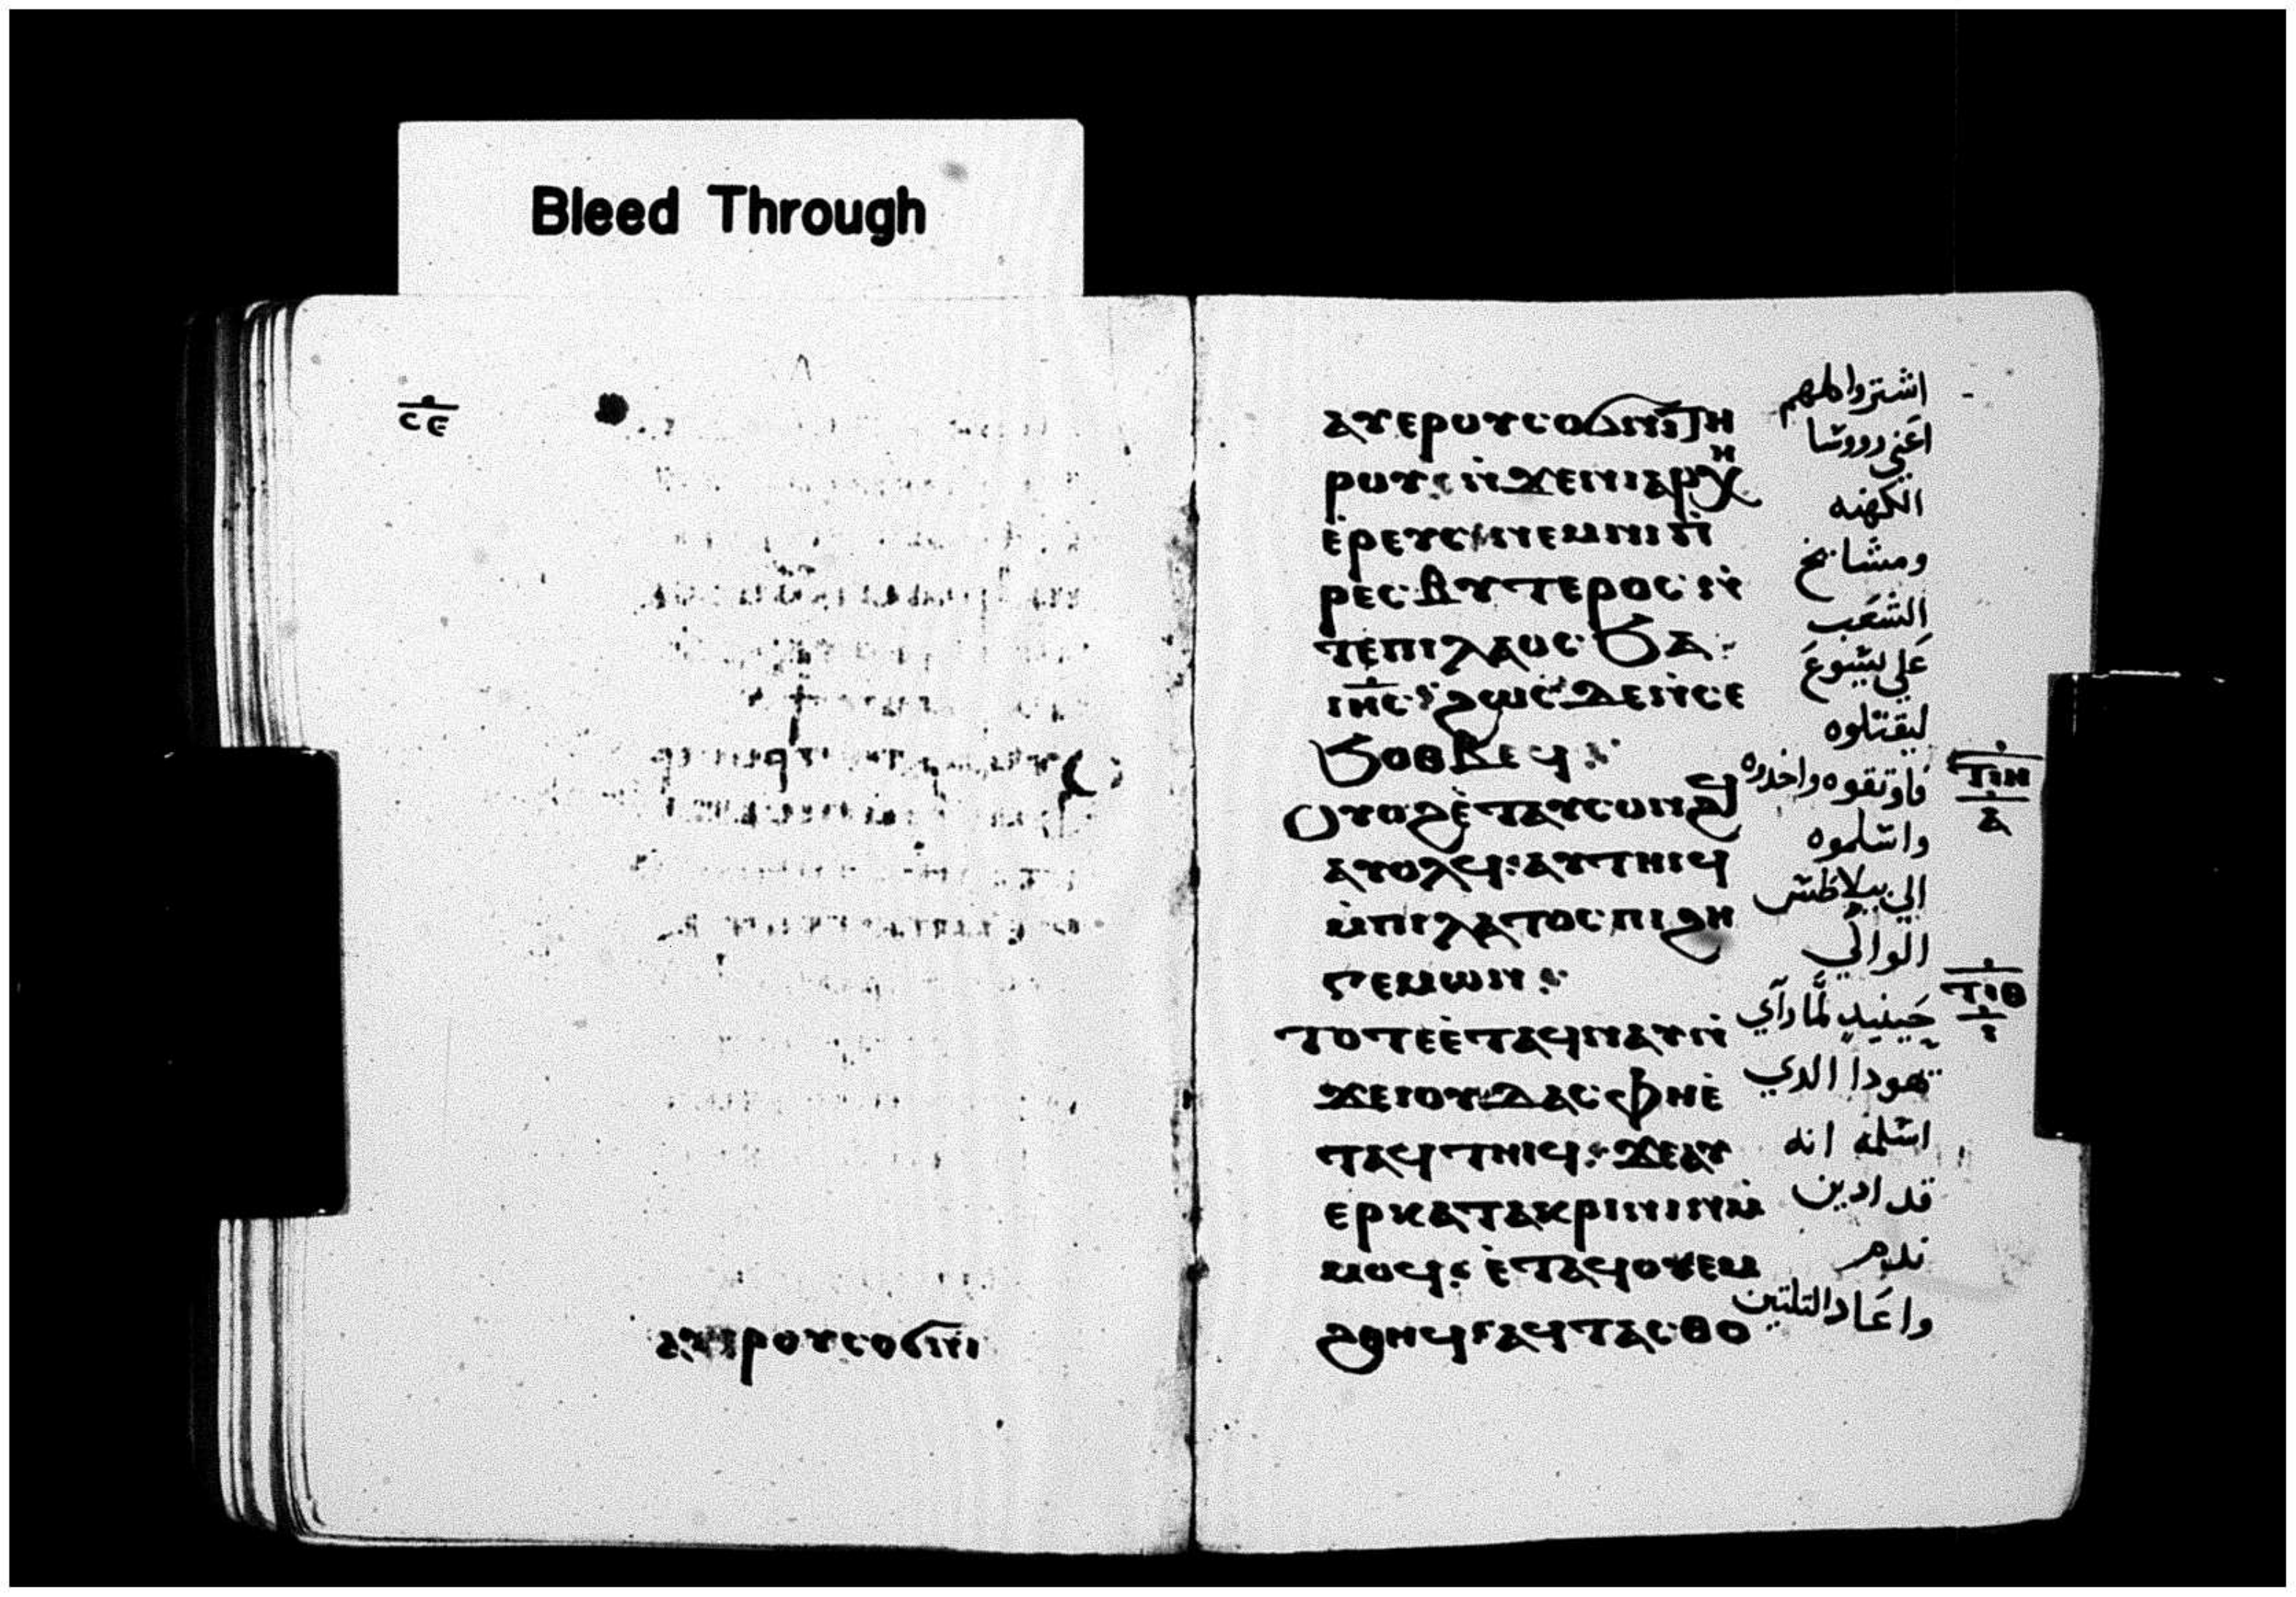 Bleed Through
ⲥⲉ
ⲁⲩⲉⲣⲟⲩⲥⲟϭⲛⲓ
ⲁⲩⲉⲣⲟⲩⲥⲟϭⲛⲓ ⲧⲏ
ⲣⲟⲩ ⲛ̀ϫⲉⲛⲓⲁⲣⲭⲏ
ⲉ̀ⲣⲉⲩⲥ ⲛⲉⲙⲛⲓⲡ̀
ⲣⲉⲥⲃⲩⲧⲉⲣⲟⲥ ⲛ̀
ⲧⲉⲡⲓⲗⲁⲟⲥ ϧⲁ
ⲓⲏ̅ⲥ ϩⲱⲥⲇⲉⲛ̀ⲥⲉ
ϧⲟⲑⲃⲉϥ
ⲟⲩⲟϩ ⲉ̀ⲧⲁⲩⲥⲟⲛϩϥ
ⲁⲩⲟⲗϥ ⲁⲩⲧⲏⲓϥ
ⲙ̀ⲡⲓⲗⲁⲧⲟⲥ ⲡⲓϩⲏ
ⲅⲉⲙⲱⲛ
ⲧⲟⲧⲉ ⲉ̀ⲧⲁϥⲛⲁⲩ ⲛ̀
ϫⲉⲓⲟⲩⲇⲁⲥ ⲫⲏⲉ̀
ⲧⲁϥⲧⲏⲓϥ ϫⲉⲁⲩ
ⲉⲣⲕⲁⲧⲁⲕⲣⲓⲛⲓⲛ ⲙ̀
ⲙⲟϥ ⲉ̀ⲧⲁϥⲟⲩⲉⲙ
ϩⲑⲏϥ ⲁϥⲧⲁⲥⲑⲟ
الكهنه
ومشايخ
الشعب
علي يسوع
ليقتلوه
فاوتقوه واخدوه
واسلموه
الي بيلاطس
الوالي
حينيد لما راي
يهودا الدي
اسلمه انه
قد ادين
ندم
واعاد التلتين
ⲧⲓⲏ
ⲁ
ⲧⲓⲑ
ⲓ